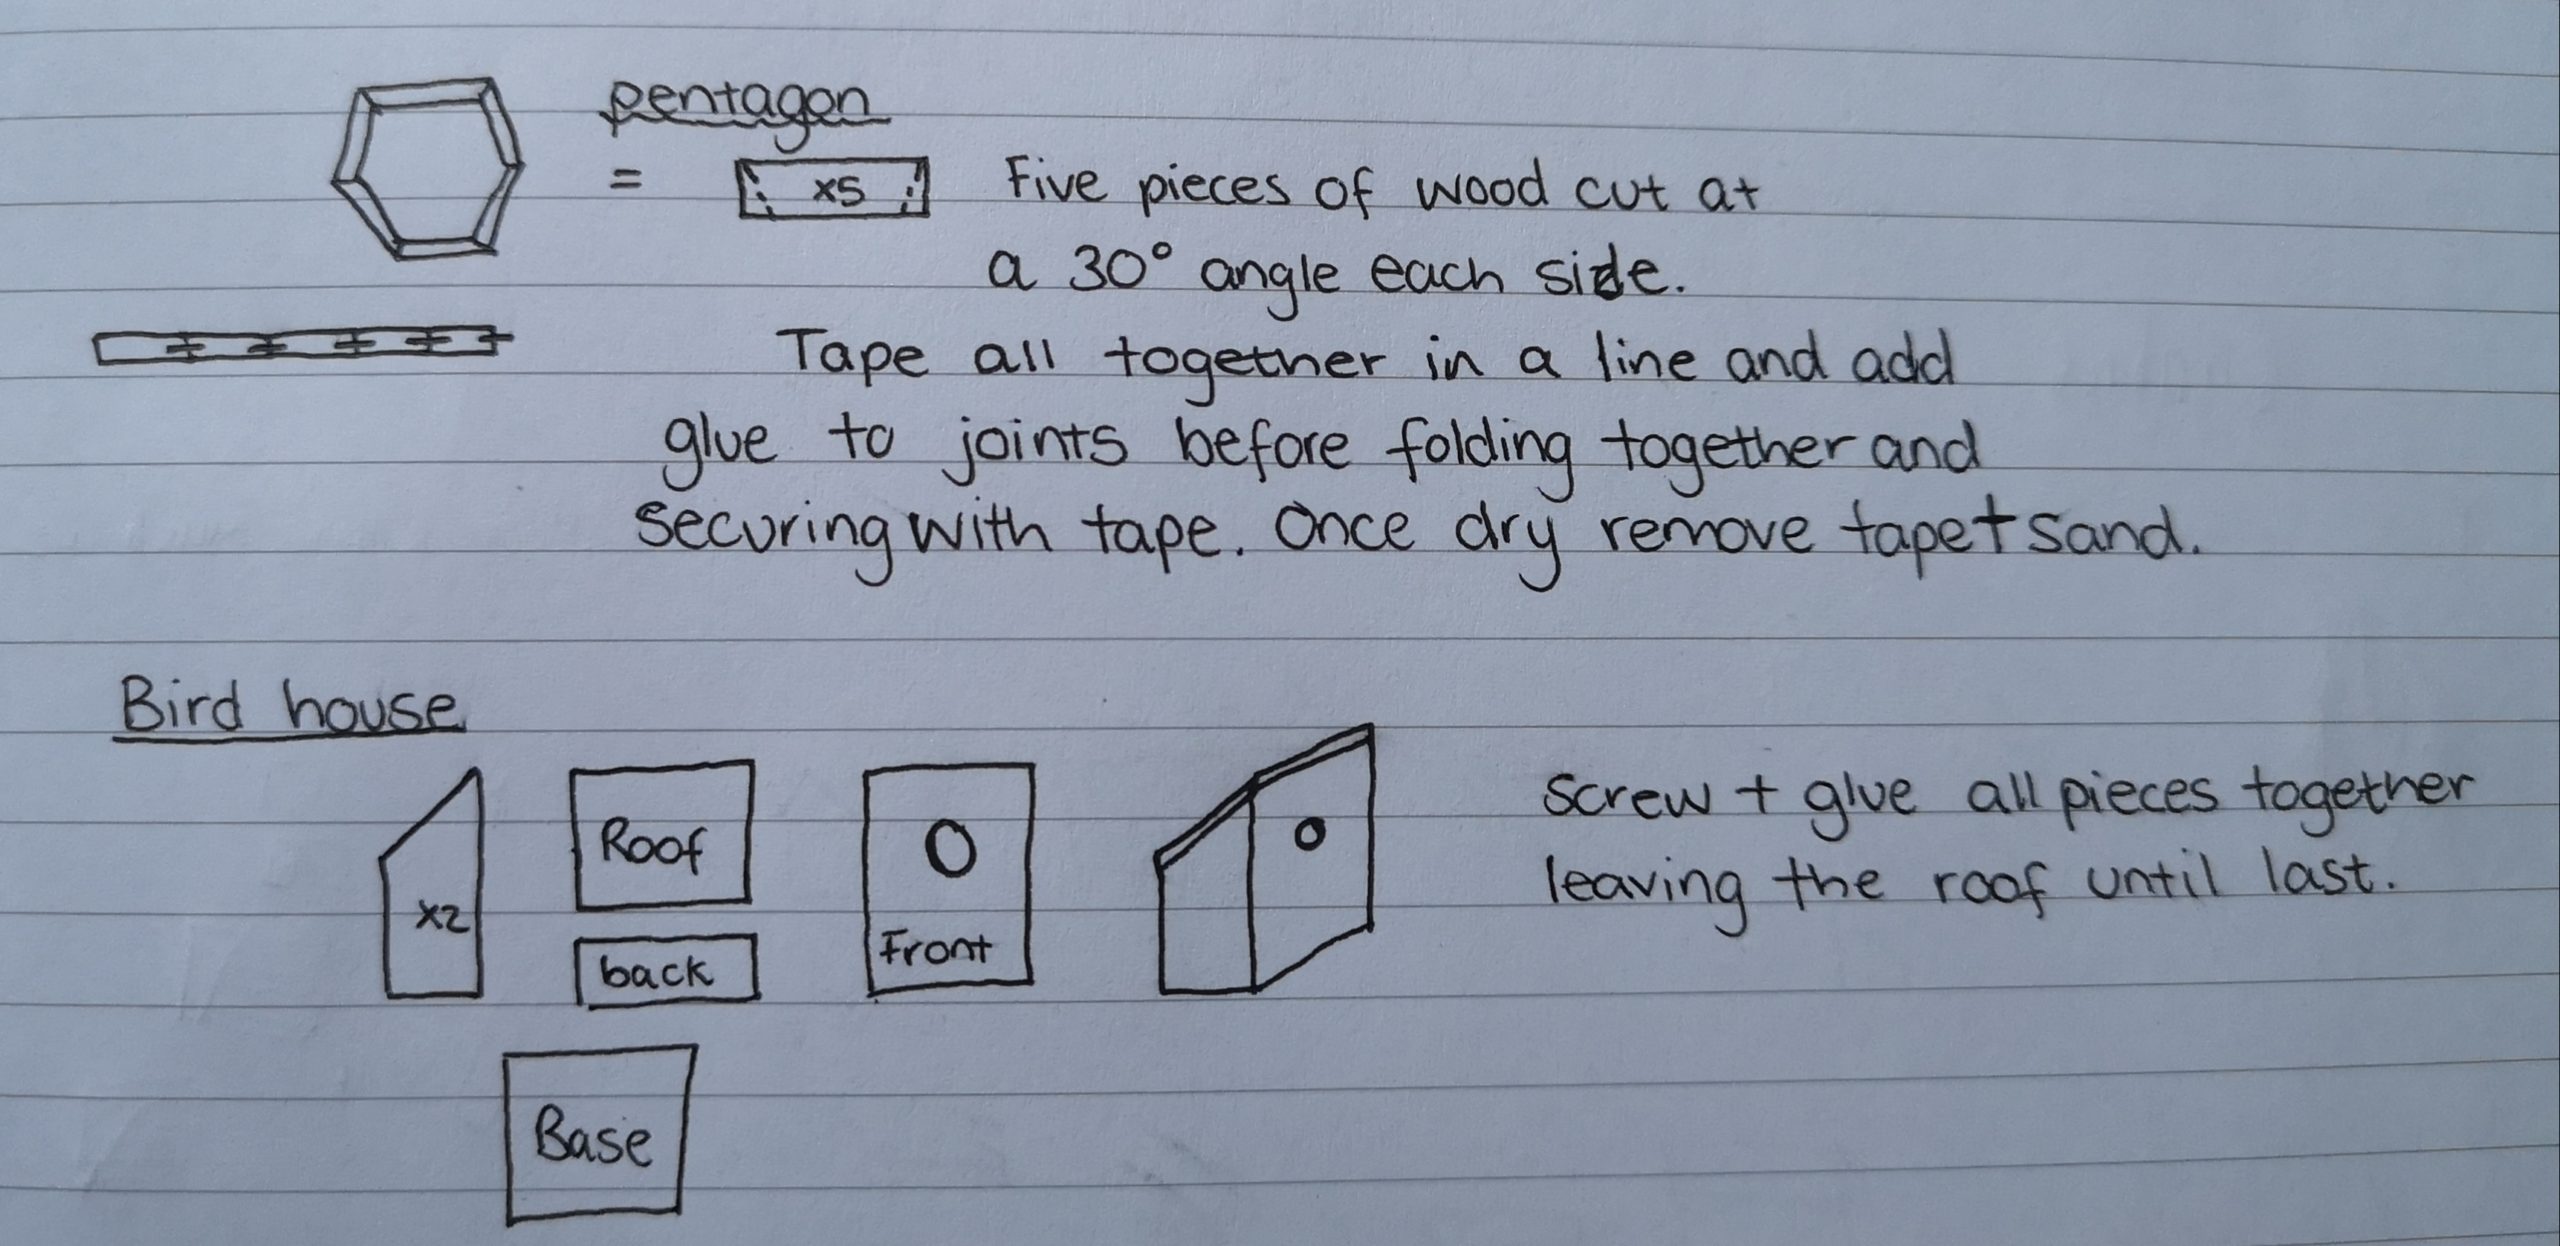 pentagon
= x5 Five pieces of wood cut at
a 30° angle each side.
Tape all together in a line and add
glue to joints before folding together and
securing with tape. Once dry remove tape + sand.
Bird house
x2
Roof
back
Front
Screw + glue all pieces together
leaving the roof until last.
Base